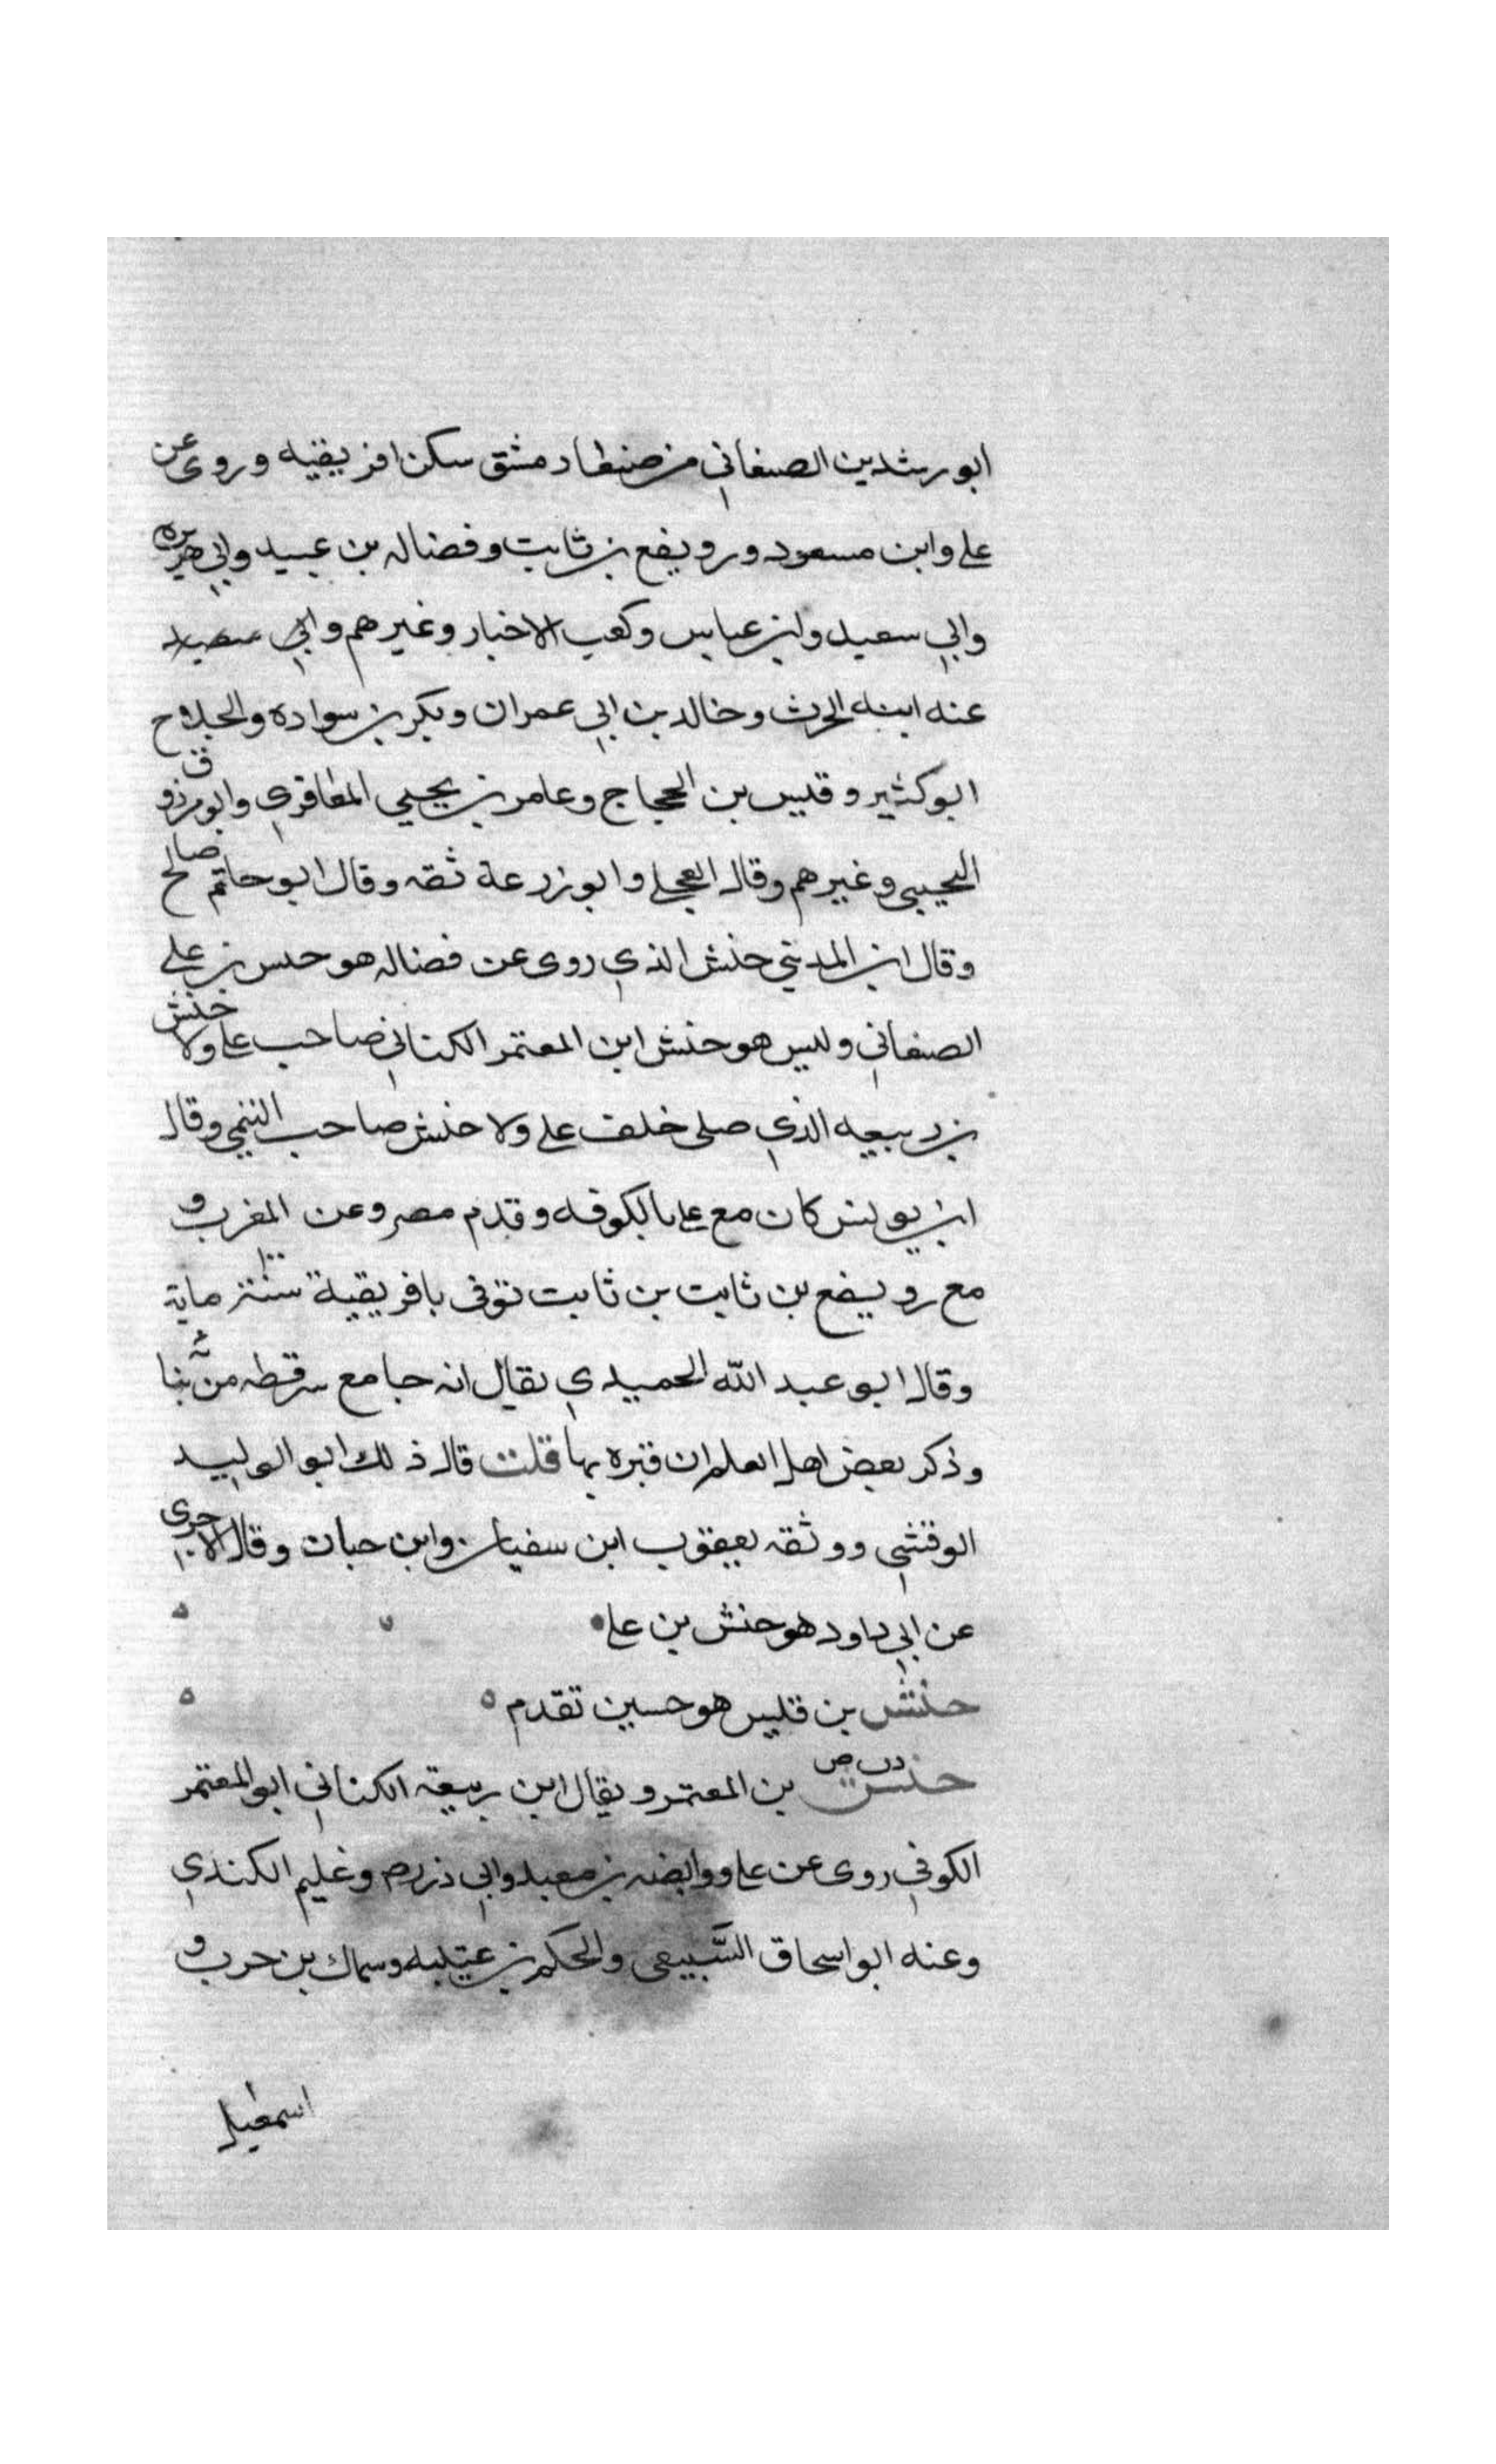 ابو رشدين الصنعاني من صنعا دمشق سكن افريقيه وروى عن
علي وابن مسعود ورويفع بن ثابت وفضاله بن عبيد وابي هريره
وابي سعيد وابن عباس وكعب الاحبار وغيرهم وابي
عنه ابنه الحرث وخالد بن ابي عمران وبكر بن سواده والجلاح
ابو كثير وقيس بن الحجاج وعامر بن يحيي المعافري وابو مرزوق
التجيبي وغيرهم وقال العجلي وابو زرعة ثقه وقال ابو حاتم صالح
وقال ابن المديني حنش الذي روى عن فضاله هو حنس بن علي
الصنعاني وليس هو حنش ابن المعتمر الكناني صاحب علي ولا حنش
بن ربيعه الذي صلى خلف علي ولا حنش صاحب التيمي وقال
ابن يونس كان مع علي بالكوفه وقدم مصر وعن المغرب و
مع رويفع بن ثابت بن ثابت توفى بافريقية سنة ١٠٠ ماية
وقال ابو عبد الله الحميدي يقال انه جامع سرقطه من بنا
وذكر بعض اهل العلم ان قبره بها قلت قال ذلك ابو الوليد
الوقشي ووثقه يعيقوب ابن سفيان وابن حبان وقال الاجري
عن ابي داود هو حنش بن علي
حنش بن قليس هو حسين تقدم ه
حنش د ت ص بن المعتمر ويقال ابن ربيعة الكناني ابو المعتمر
الكوفي روى عن علي ووابصه بن معبد وابي ذر وعليم الكندي
وعنه ابو اسحاق السَّبيعي والحكم بن عتيبه وسماك بن حرب و
اسمعيل